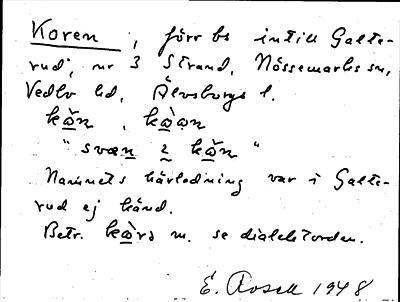 Koren, förr bs intill Galte-
rud, nr 3 Strand, Nössemarks sn,
Vedbo hd, Älvsborgs l.
kån, kåan
"svæn i kån"
Namnets härledning var i Galte-
rud ej känd.
Betr. m. se dialektorden.
E. Rosell 1948